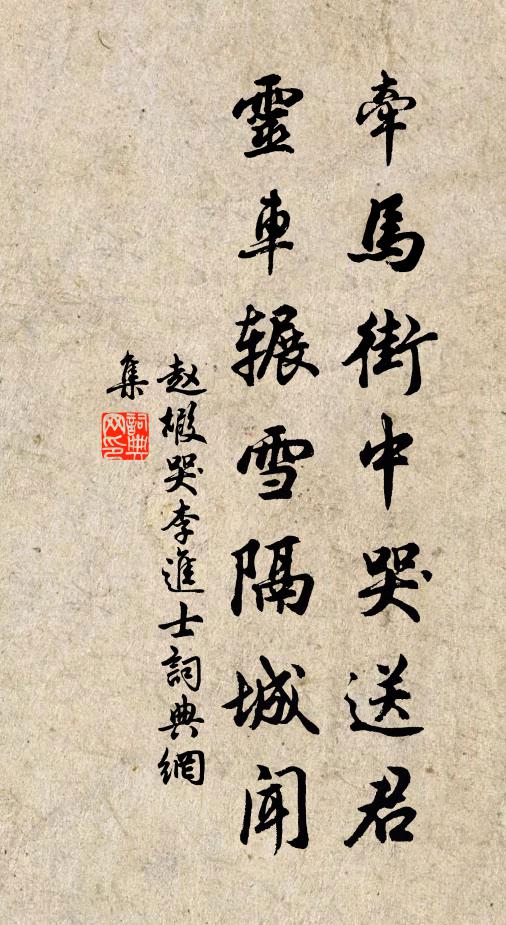 牵馬街中哭送君
靈車辗雪隔城闻
赵嘏哭李進士詞典網
集
詞典
网印